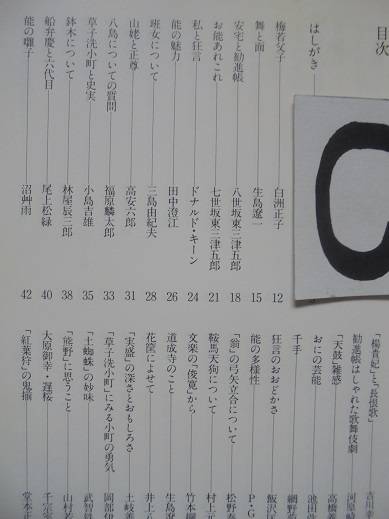 目次
はしがき
梅若父子 白洲正子 12
舞と面 生島遼一 15
安宅と勧進帳 八世坂東三津五郎 18
お能あれこれ 七世坂東三津五郎 21
私と狂言 ドナルド・キーン 24
能の魅力 田中澄江 26
班女について 三島由紀夫 28
山姥と正尊 高安六郎 31
八島についての質問 福原麟太郎 33
草子洗小町と史実 小島吉雄 35
鉢木について 林屋辰三郎 38
船弁慶と六代目 尾上松緑 40
能の囃子 沼艸雨 42
「楊貴妃」と「長恨歌」
勧進帳はしゃれた歌舞伎劇 河原崎
「天鼓」雑感 高橋
おにの芸能 池田
千手 網野
狂言のおおどかさ 飯沢
能の多様性 P・G
「翁」の弓矢立合について 松野
鞍馬天狗について 村上
文楽の「俊寛」から 竹本
道成寺のこと 生島
花筐によせて 井上
「実盛」の深さとおもしろさ 土岐善
「草子洗」にみる小町の勇気 岡部伊
「土蜘蛛」の妙味 武智鉄
「熊野」に思うこと 山村若
大原御幸・遅桜 千宗室
「紅葉狩」の鬼揃 堂本正
C